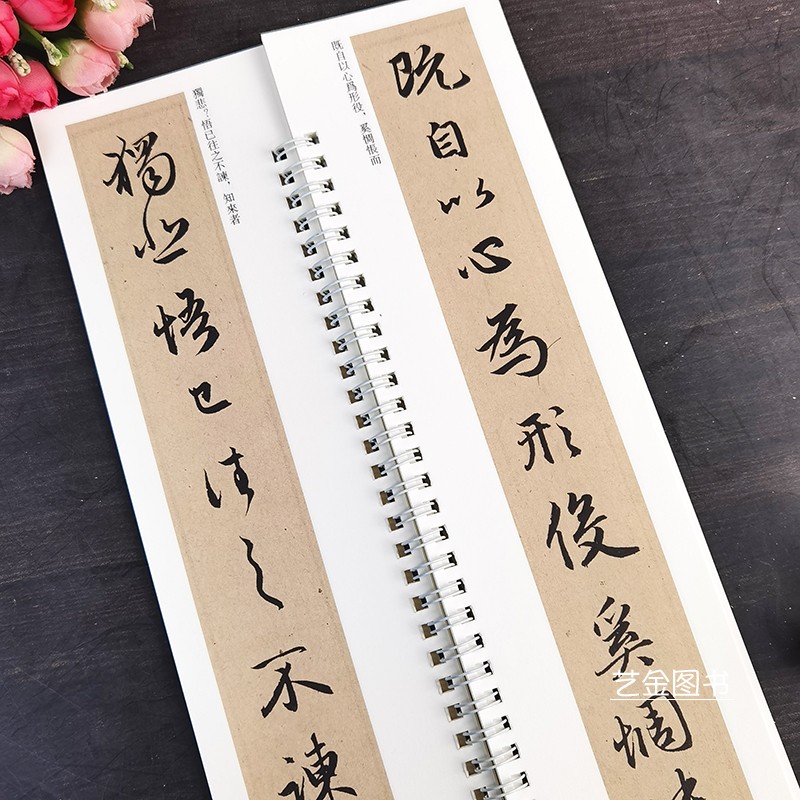 既自以心為形役奚惆
既自以心爲形役，奚惆悵而
獨悲？悟已往之不諫，知來者
獨悲悟已往之不諫
艺金图书